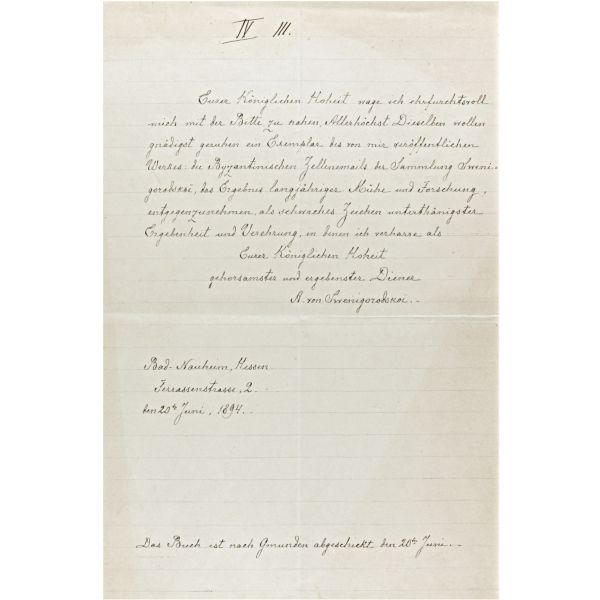 IV III.
Eurer Königlichen Hoheit wage ich ehrfurchtsvoll
mich mit der Bitte zu nahen, Allerhöchst Dieselben wollen
gnädigst geruhen ein Exemplar des von mir veröffentlichen
Werkes: die Byzantinischen Zellenemails der Sammlung Sweni-
gorodskoï, das Ergebnis langjähriger Mühe und Forschung,
entgegenzunehmen, als schwaches Zeichen unterthänigster
Ergebenheit und Verehrung, in denen ich verharre als
Eurer Königlichen Hoheit
gehorsamster und ergebenster Diener
A. von Swenigorodskoï.
Bad-Nauheim, Hessen
Terrassenstrasse, 2.
den 20ten Juni, 1894.
Das Buch ist nach Gmunden abgeschickt den 20ten Juni.